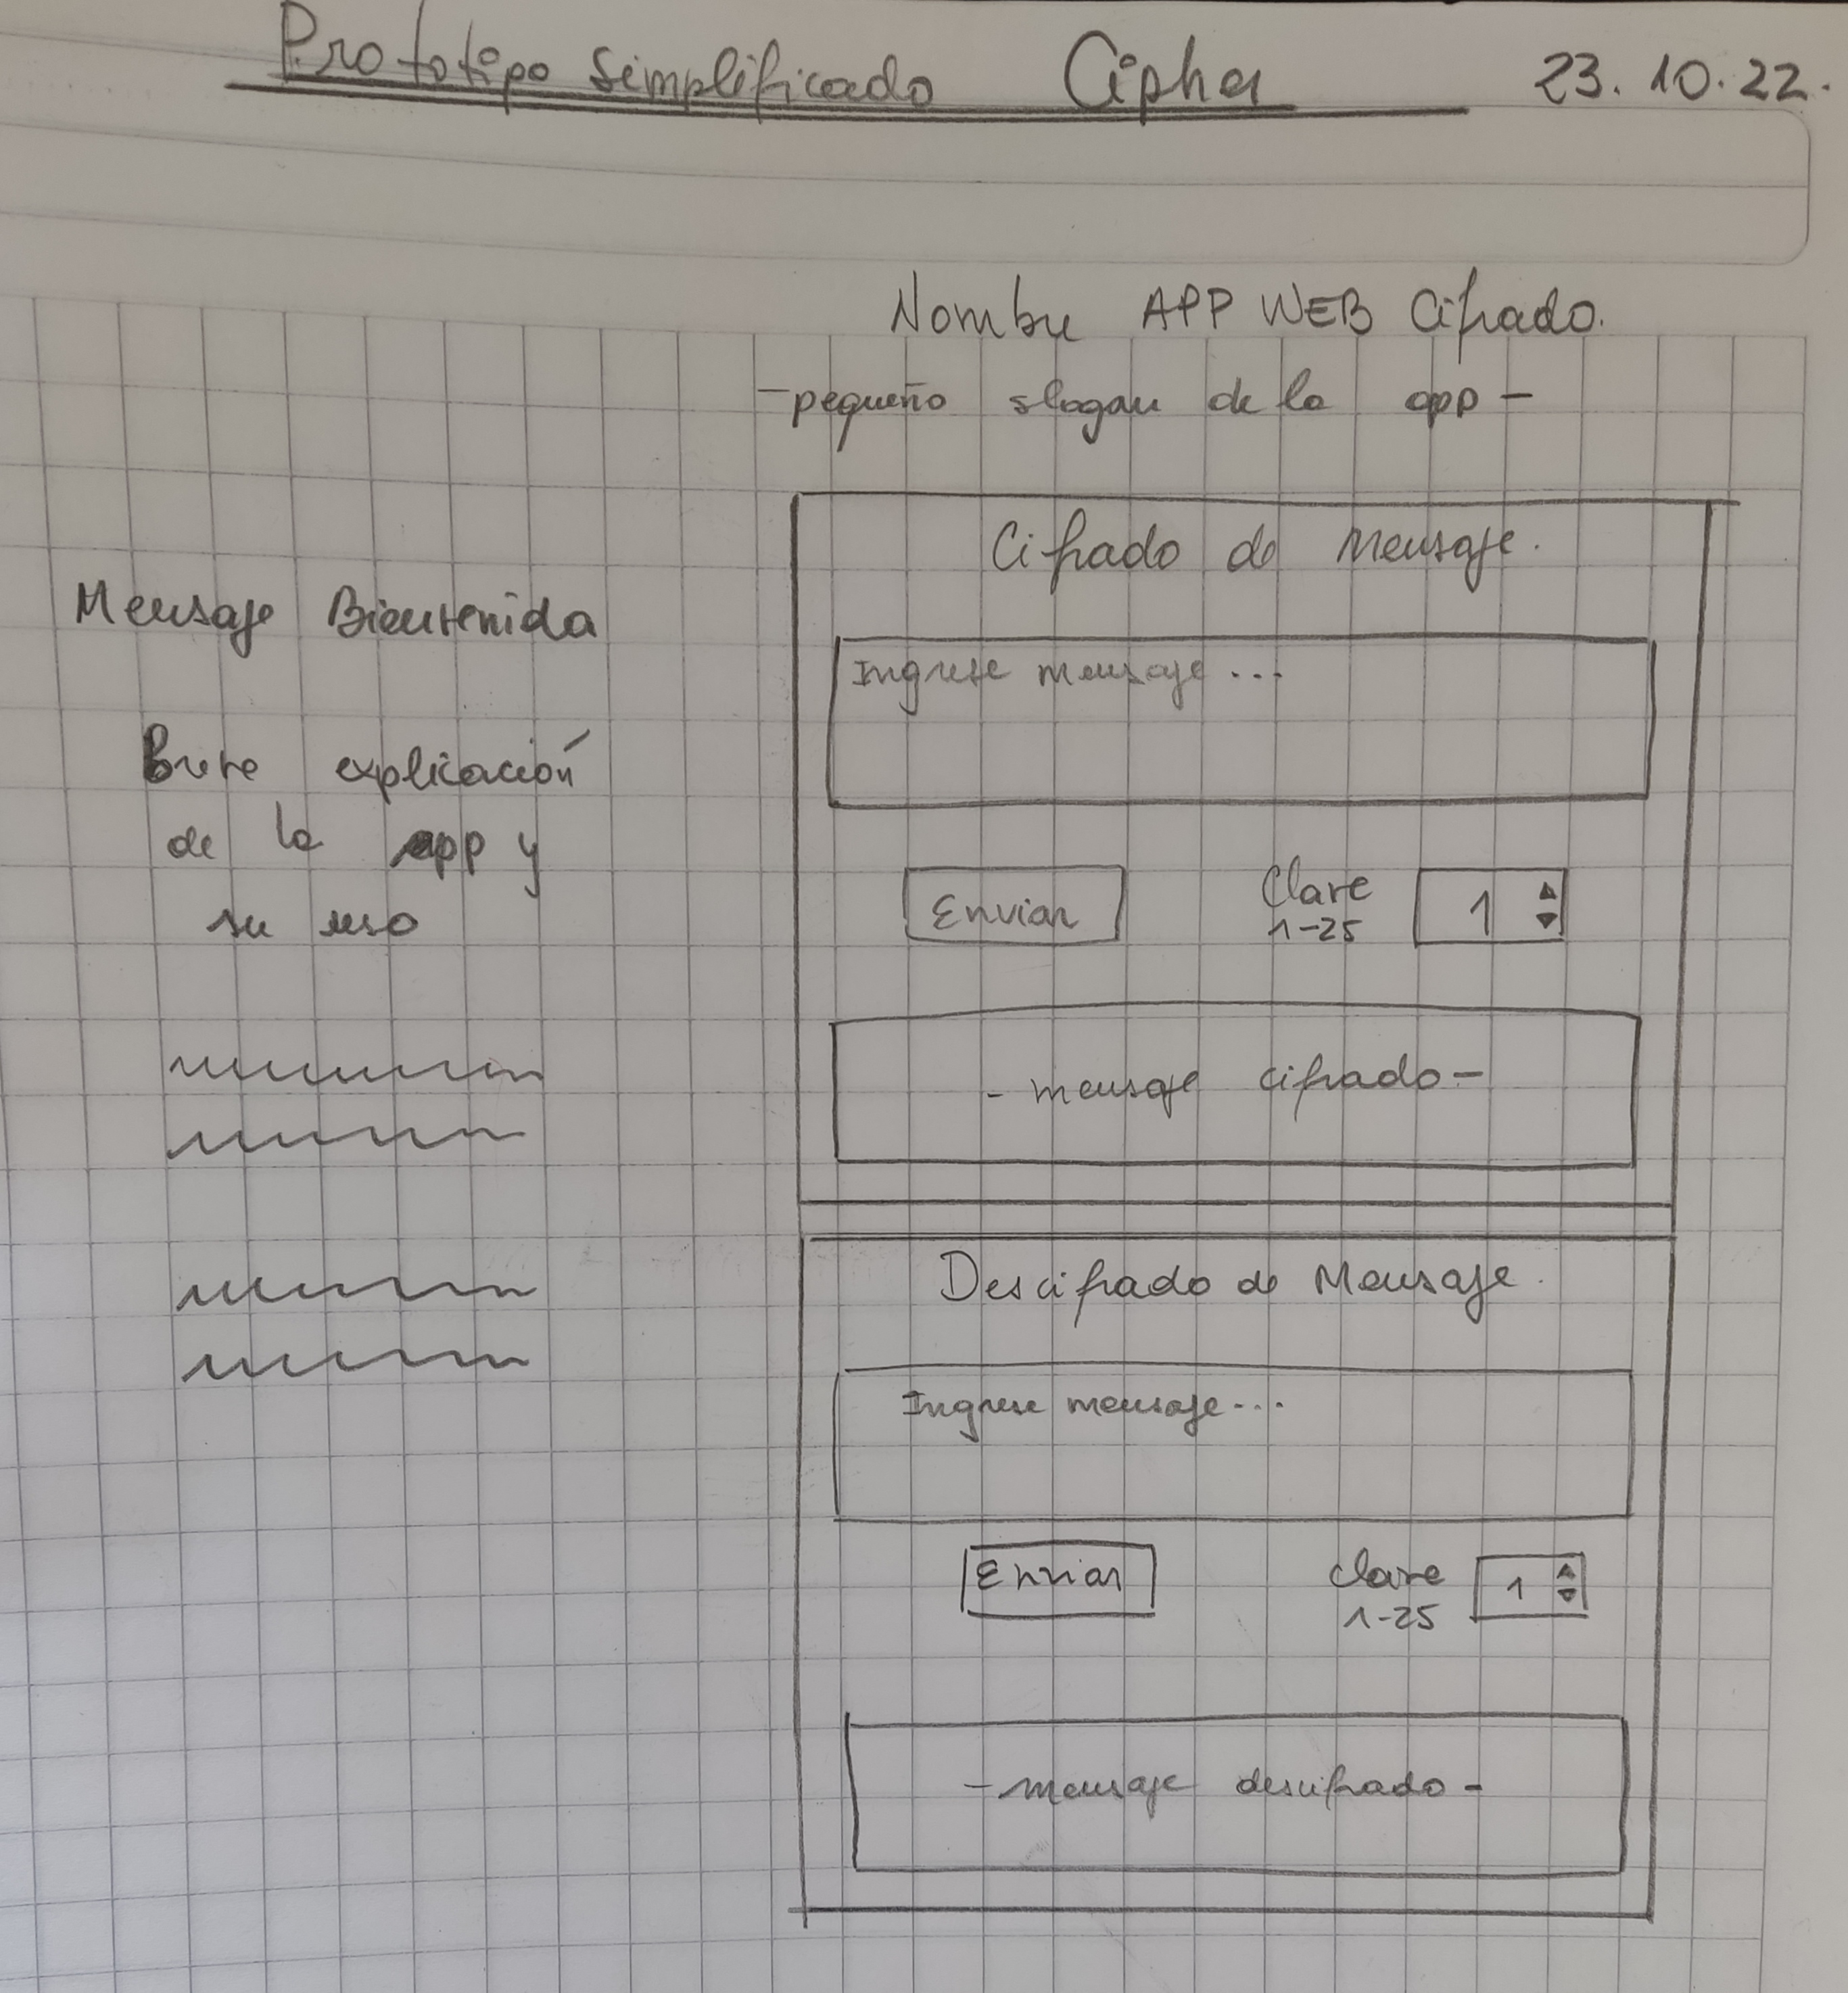 Prototipo simplificado Cipher 23.10.22.
Nombre APP WEB Cifrado.
-pequeño slogan de la app-
Mensaje Bienvenida
Breve explicación
de la app y
su uso
Cifrado de Mensaje.
Ingrese mensaje...
Enviar
Clave
1-25
1
- mensaje cifrado-
Descifrado de Mensaje.
Ingrese mensaje...
Enviar
Clave
1-25
1
- mensaje descifrado -